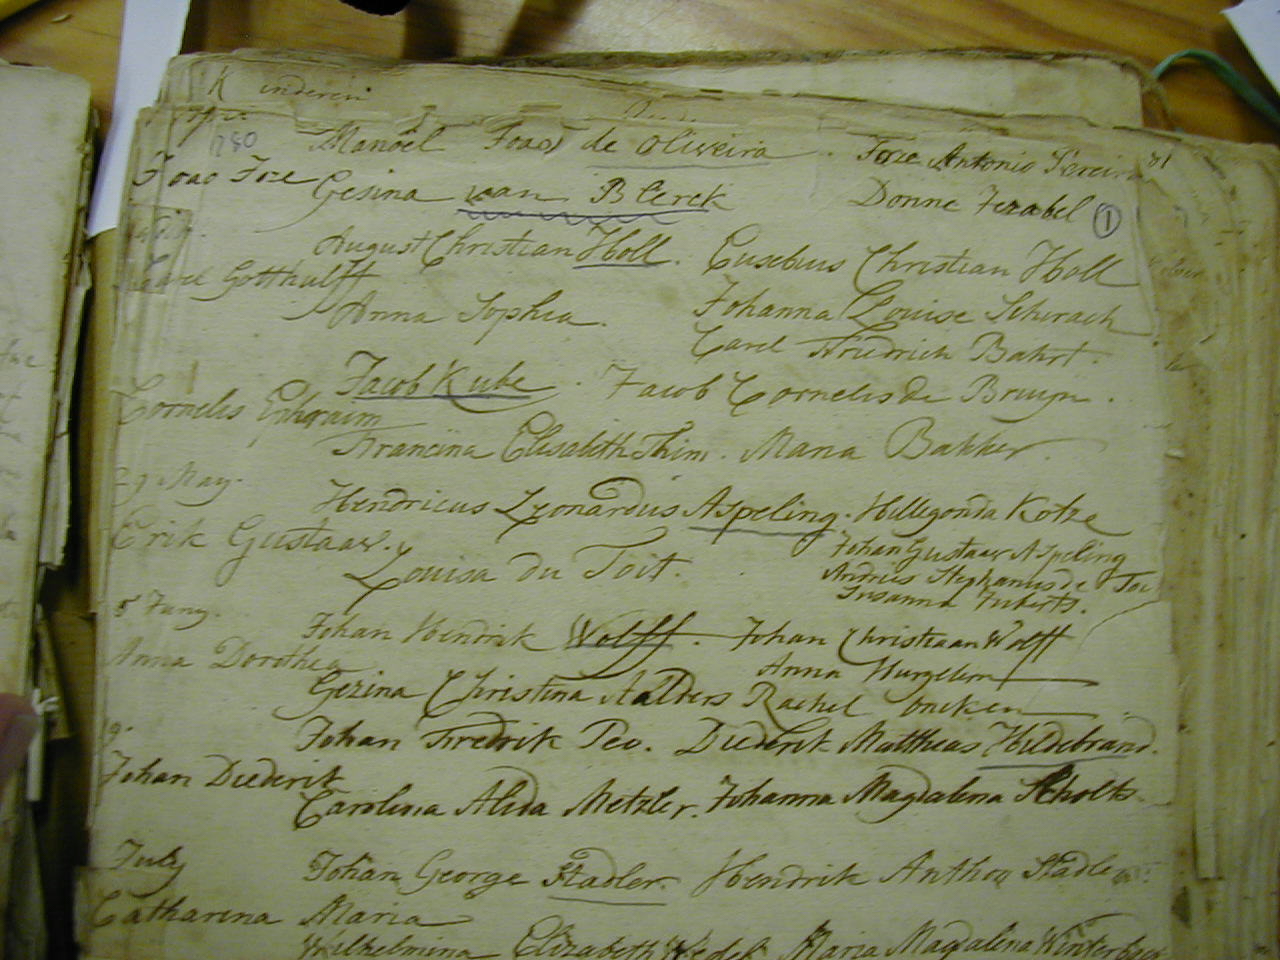 Kinderen
1780 Manoël Joao de Oliveira Joze Antonio Perei 81
Joao Joze Gesina van Blerck Donne Jezabel 1
August Christian Holl. Eusebius Christian Holl
Gotthulff
Anna Sophia. Johanna Louise Schirach
Carel Friedrich Bahrt.
Jacob Kube. Jacob Cornelis de Bruyn.
Cornelis Ephraim
Francina Elisabeth Thim. Maria Bakker.
29 May.
Hendricus Leonardus Aspeling. Hillegonda Kotze
Erik Gustaav. Johan Gustaav Aspeling
Louisa du Toit. Andries Stephanus de Toi
Susanna
5 Juny.
Johan Hendrik Wolff. Johan Christiaan Wolff
Anna Dorothea Anna
Gezina Christina Aalders Rachel Oncken
19.
Johan Fredrik Peo. Diederik Mattheas Hildebrand.
Johan Diederik
Carolina Alida Metzler. Johanna Magdalena Scholts.
July
Johan George Stadler. Hendrik Anthon Stadle
Catharina Maria
Wilhelmina Elizabeth Maria Magdalena